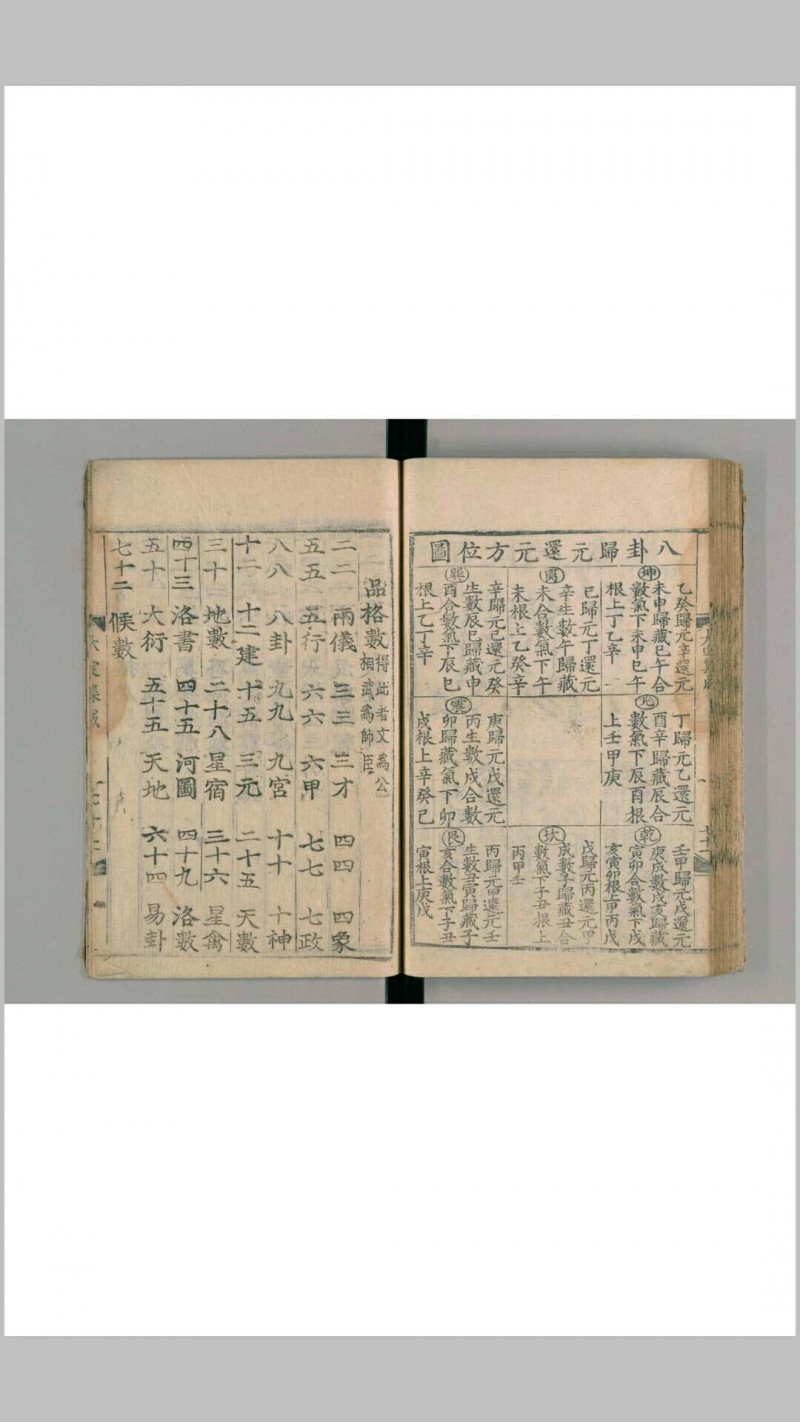 八卦歸元還元方位圖
坤
乙癸歸元辛還元
未申歸藏巳午合
數氣下未申巳午
根上丁乙辛
离
己歸元丁還元
辛生數午歸藏
未合數氣下午
未根上乙癸辛
巽
辛歸元己還元癸
生數辰巳歸藏申
酉合數氣下辰巳
根上乙丁辛
兊
丁歸元乙還元
酉辛歸藏辰合
數氣下辰酉根
上壬甲庚
震
庚歸元戊還元
丙生數戊合數
卯歸藏氣下卯
戌根上辛癸己
乾
壬甲歸元戊還元
庚成數戌亥歸藏
寅卯合數氣下戌
亥寅卯根上甲丙戊
坎
戊歸元丙還元甲
成數子歸藏丑合
數氣下子丑根上
丙甲壬
艮
丙歸元甲還元壬
生數丑寅歸藏子
亥合數氣下子丑
寅根上庚戊
品格數 得此者文為公相武為師臣
二二 兩儀 三三 三才 四四 四象
五五 五行 六六 六甲 七七 七政
八八 八卦 九九 九宮 十十 十神
十一 十二建 十五 三元 二十五 天數
三十 地數 二十八 星宿 三十六 星禽
四十三 洛書 四十五 河圖 四十九 洛數
五十 大衍 五十五 天地 六十四 易卦
七十二 候數